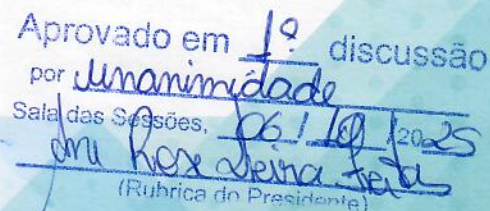 Aprovado em 1ª discussão
por Unanimidade
Sala das Sessões, 06 / 10 / 2025
Rose
(Rubrica do Presidente)